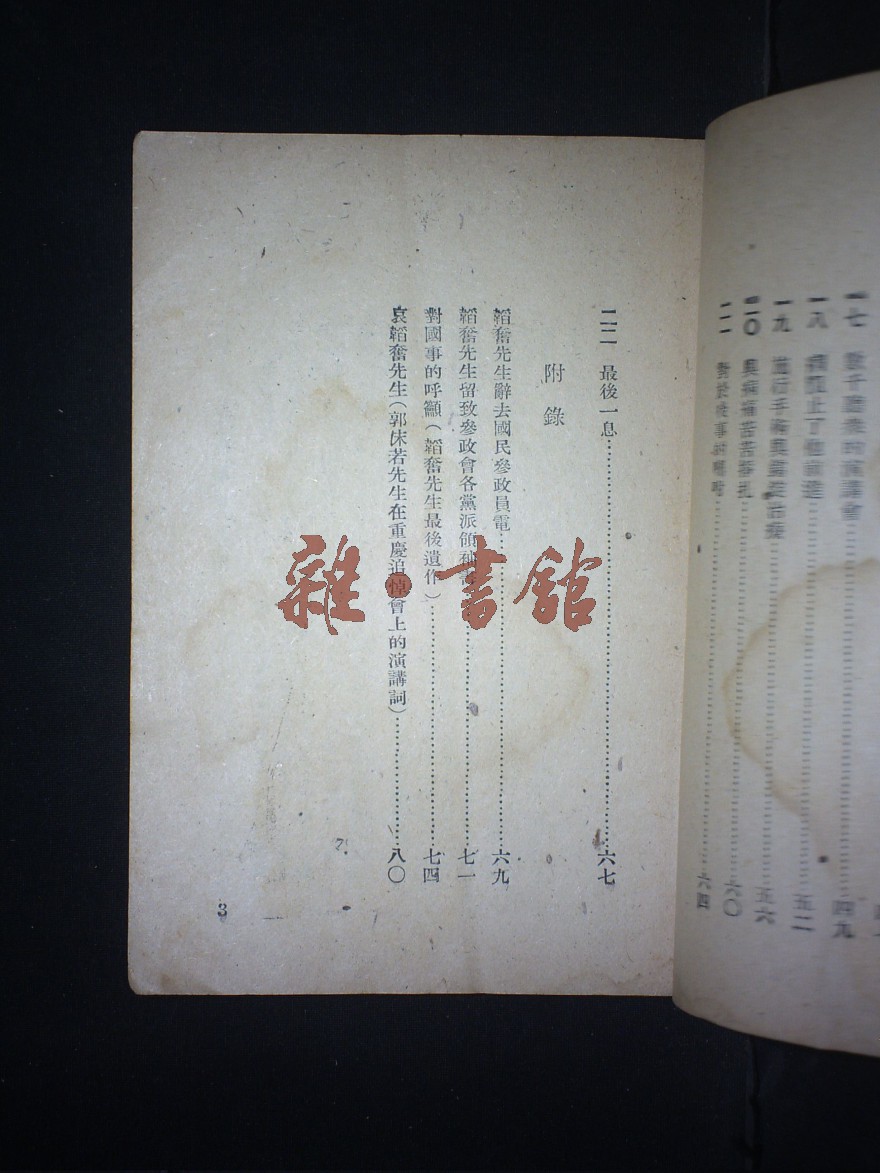 一七 數千聽衆的演講會……四九
一八 病阻止了他前進……五二
一九 施行手術與鐳錠治療……五六
二〇 與病痛苦苦掙扎……六〇
二一 對於後事的囑咐……六四
二二 最後一息……六七
附錄
韜奮先生辭去國民參政員電……六九
韜奮先生留致參政會各黨派領袖書……七一
對國事的呼籲(韜奮先生最後遺作)……七四
哀韜奮先生(郭沫若先生在重慶追悼會上的演講詞)……八〇
3
雜·書館